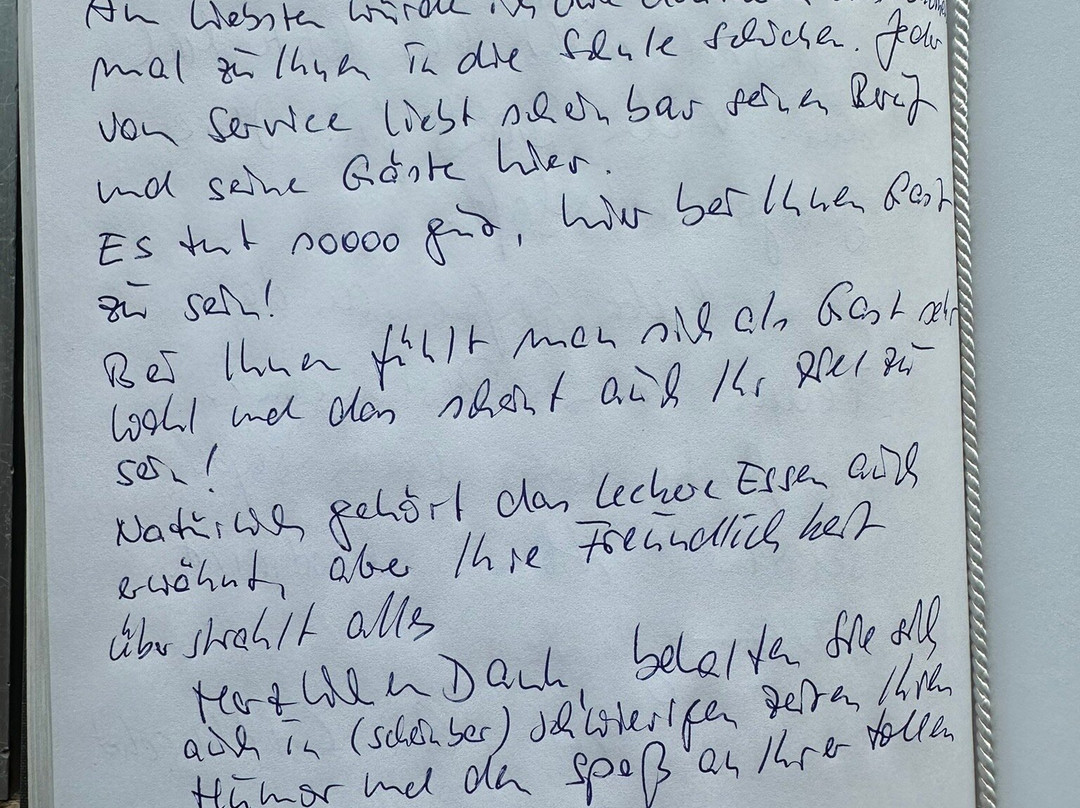 Am liebsten würde ich
mal zu Ihnen in die Schule schicken. Jeder
vom Service liebt scheinbar seinen Beruf
und seine Gäste hier.
Es tut soooo gut, hier bei Ihnen Gast
zu sein!
Bei Ihnen fühlt man sich als Gast sehr
wohl und das scheint auch Ihr Ziel zu
sein!
Natürlich gehört das leckere Essen auch
erwähnt, aber Ihre Freundlichkeit
überstrahlt alles
Herzlichen Dank, behalten Sie sich
auch in (scheinbar) schwierigen Zeiten Ihren
Humor und den Spaß an Ihrer tollen